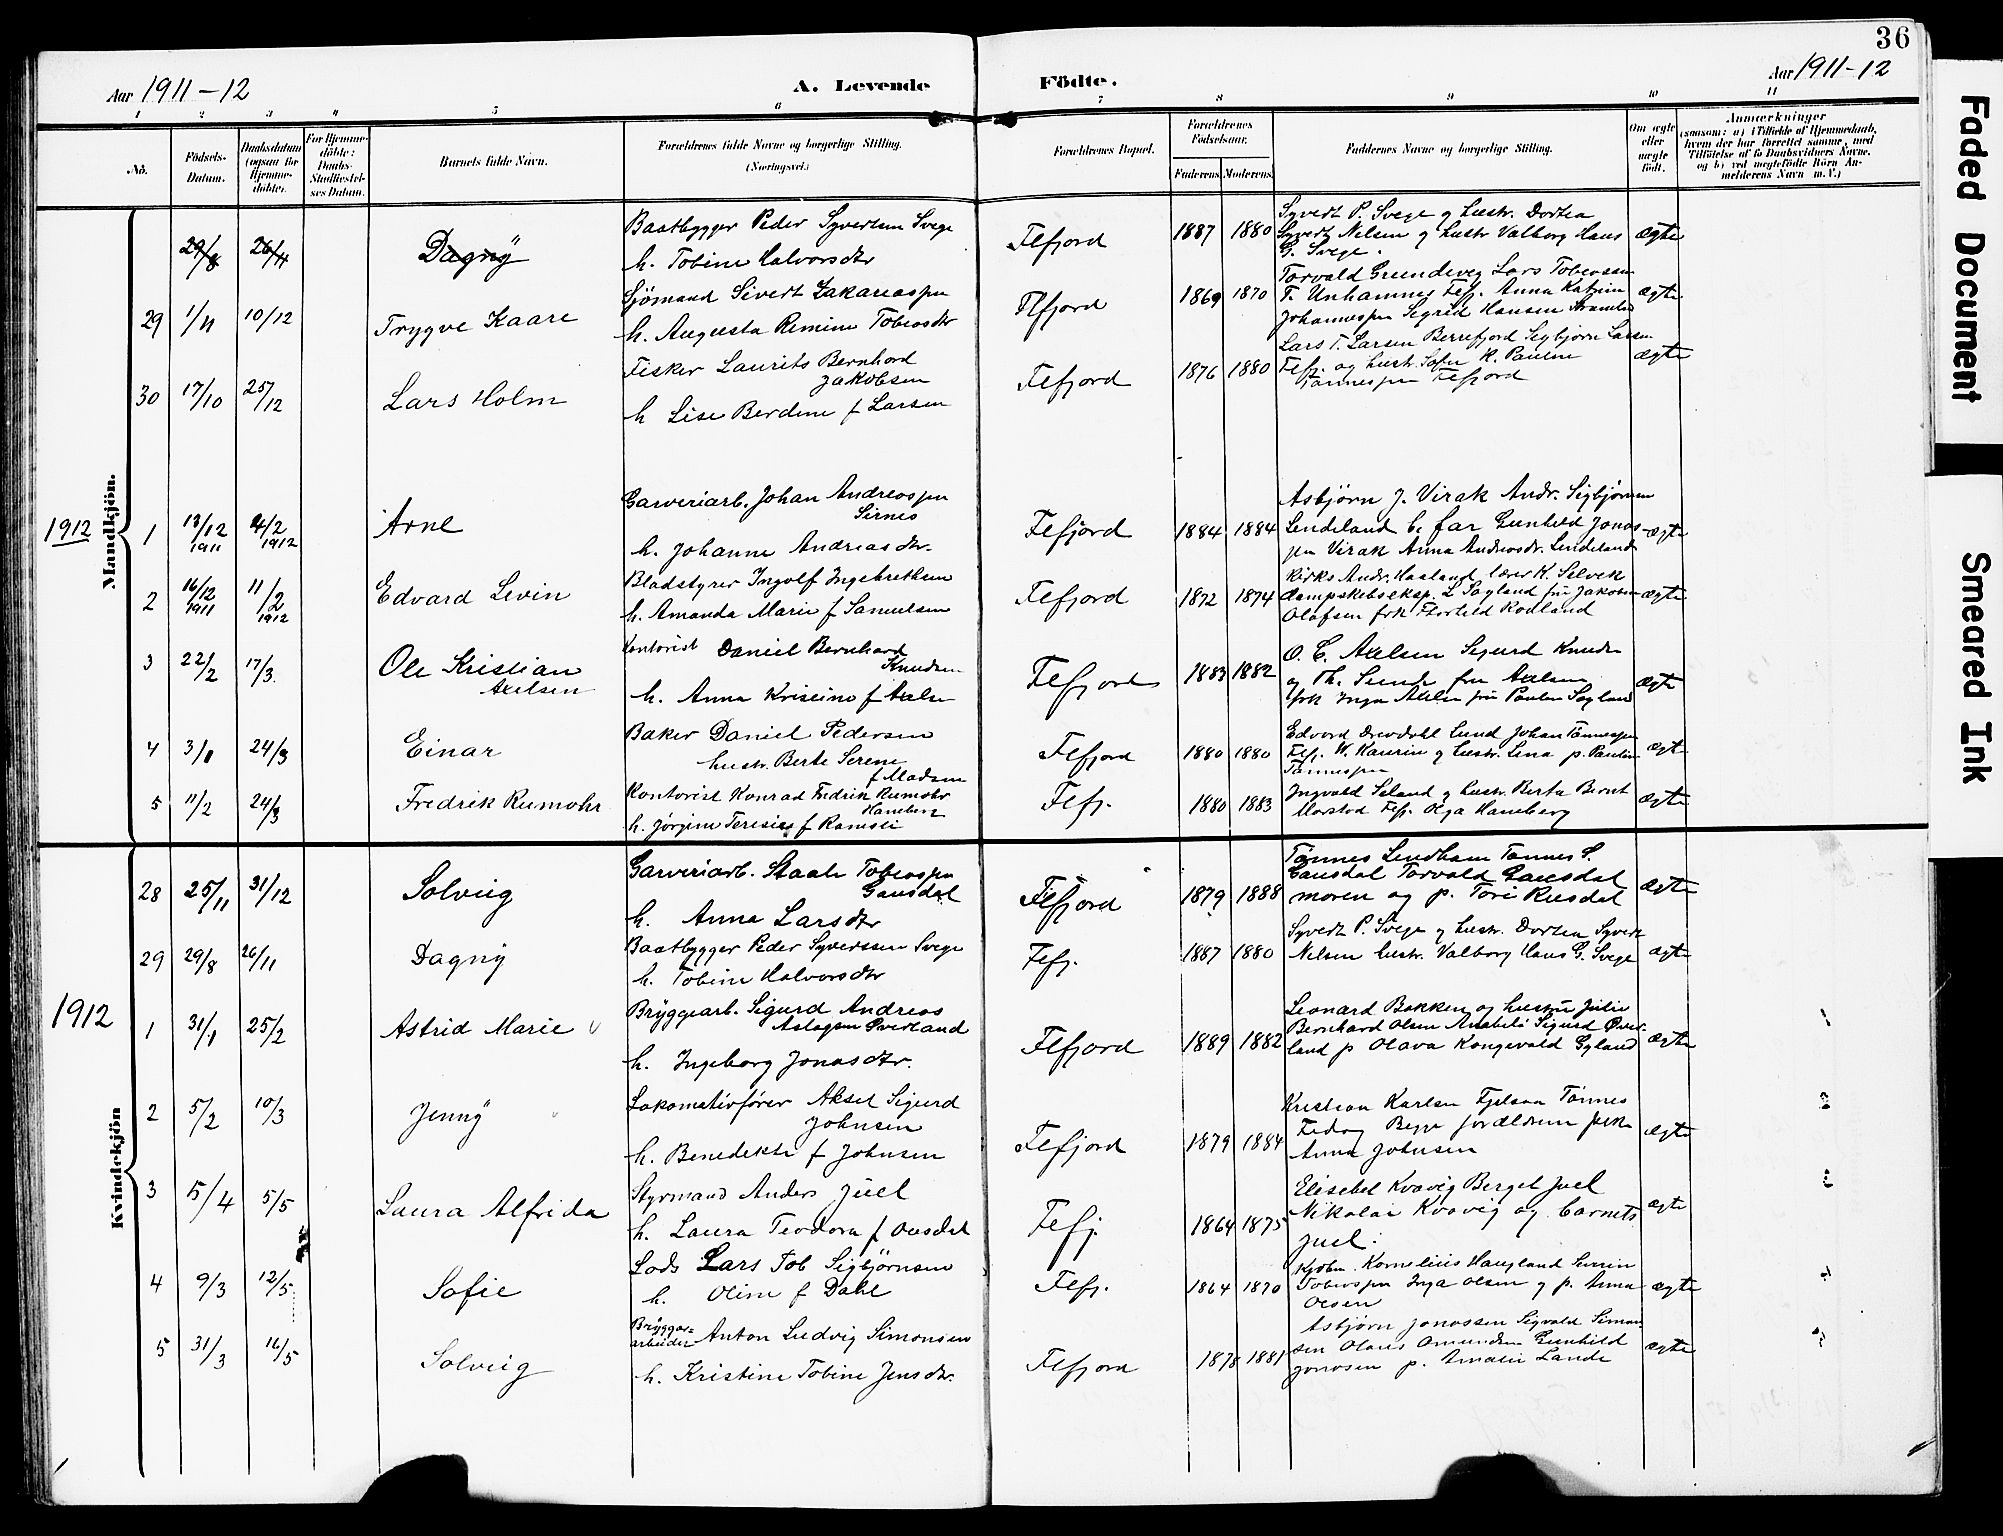 36
Aar 1911-12
A. Levende Födte.
Aar 1911-12
1 2 3 4 5 6 7 8 9 10 11
No.
Födsels-Datum.
Daabsdatum (ogsaa for Hjemme-döbte).
For Hjemme-döbte: Daabs-Stadfæstelses Datum.
Barnets fulde Navn.
Forældrenes fulde Navne og borgerlige Stilling. (Næringsvei.)
Forældrenes Bopæl.
Forældrenes Födselsaar.
Faderens. Moderens.
Faddernes Navne og borgerlige Stilling.
Om ægte eller uægte födt.
Anmærkninger
(saasom: a) i Tilfælde af Hjemmedaab, hvem der har forrettet samme, med Tilföielse af to Daabsvidners Navne, og b) ved uægtefödte Börn Anmelderens Navn m. V.)
Mandkjön.
29/8 26/11 Dagny
Baatbygger Peder Syvertsen Svege
h. Tobine Halvorsdtr
Flefjord 1887 1880
Syvert P. Svege og hustr. Dortea
Syvert Nelsen og hustr Valborg Hans
G. Svege.
ægte
29 1/11 10/12 Trygve Kaare
Sjömand Sivert Zakariaspn
h. Augusta Remine Tobiasdtr
Flfjord 1869 1870
Torvald Grundevig Lars Tobiassen
T. Unhammes Flefj. Anna Katrine
Johannespn Sigrid Hansen
ægte
30 17/10 25/12 Lars Holm
Fisker Laurits Bernhard
Jakobsen
h Lise Berdine f Larsen
Flefjord 1876 1880
Lars T. Larsen Berrefjord Sigbjörn Larsen
Flefj. og hustr. Sofie K. Paulsen
Tönnespn Flefjord
ægte
1912
1 13/12 1911 4/2 1912 Arne
Garveriarb. Johan Andreaspn
Sirnes
h. Johanne Andreasdtr.
Flefjord 1884 1884
Asbjörn J. Virak Andr. Sigbjörnsen
Lendeland b. far Gunhild Jonas-
pn Virak Anna Andreasdr. Lendeland
ægte
2 16/12 1911 11/2 1912 Edvard Levin
Bladstyrer Ingolf Ingebrethsen
h. Amanda Marie f Samuelsen
Flefjord 1872 1874
Kirks Andr. Haaland lærer K. Selvik
dampskibseksp. L Sagland fru Jakobsen
Olafsen frk Thorhild Rodland
ægte
3 22/2 17/3. Ole Kristian
Axelsen
Kontorist Daniel Bernhard
Knudsen
h. Anna Kristine f Axelsen
Flefjord 1883 1882
O. C. Axelsen Sigurd Knudsen
og Th. Sunde fru Axelsen
frk Inga Axelsen fru Paulsen Sagland
ægte
4 3/1 24/3 Einar
Baker Daniel Pedersen
hustr. Berte Serene
f Madsen
Flefjord 1880 1880
Edvard Drevdahl Lund Johan Tönnespn
Flefj. W. Kaurin og hustr. Lina p. Pauline
Tönnespn
ægte
5 11/2 24/3 Fredrik Rumohr
Kontorist Konrad Fredrik Rumohr
Hamberg
h. Jörgine Teresie f Ramsli
Flefj. 1880 1883
Ingvald Seland og hustr. Berta Bernt
Morstod Flefj. Olga Haneberg
ægte
Kvindekjön
28 25/11 31/12 Solveig
Garveriarb. Staale Tobiaspn
Gausdal
h. Anna Larsdtr
Flefjord 1879 1888
Tönnes Lindham Tönnes S.
Gausdal Torvald Gausdal
moren og p. Tori Rusdal
ægte
29 29/8 26/11 Dagny
Baatbygger Peder Syvertsen Svege
h. Tobine Halvorsdtr
Flefj. 1887 1880
Syvert P. Svege og hustr. Dortea Syvert
Nelsen hustr. Valborg Hans G. Svege
ægte
1912
1 31/1 25/2 Astrid Marie
Bryggearb. Sigurd Andreas
Aslagsen Överland
h. Ingeborg Jonasdtr.
Flefjord 1889 1882
Leonard Bakken og hustru Julie
Bernhard Olsen Anabelö Sigurd Över-
land p Olava Kongevold Gyland
ægte
2 5/2 10/3 Jenny
Lokomotivförer Aksel Sigurd
Johnsen
h. Benedikte f Johnsen
Flefjord 1879 1884
Kristian Karlsen Fjelsaa Tönnes
Fedog Begge forældrene frk
Anna Johnsen
ægte
3 5/4 5/5 Laura Alfrida
Styrmand Anders Juel
h. Laura Teodora f Ousdal
Flefj. 1864 1875
Elisabet Kvavig Berget Juel
Nikolai Kvavig og barnets
Juel.
ægte
4 9/3 12/5 Sofie
Lods Lars Tob Sigbjörnsen
h. Oline f Dahl
Flefj. 1864 1870
Kjöbm. Kornelius Haugland Severin
Tobiaspn Inga Olsen og p. Anna
Olsen
ægte
5 31/3 16/5 Solveig
Brygge-
arbeider Anton Ludvig Simonsen
h. Kristine Tobine Jensdtr.
Flefjord 1878 1881
Asbjörn Jonassen Sigvald Simon-
sen Olaus Omundsen Gunhild
Jonasen p. Amalie Lande
ægte
Faded Document
Smeared Ink